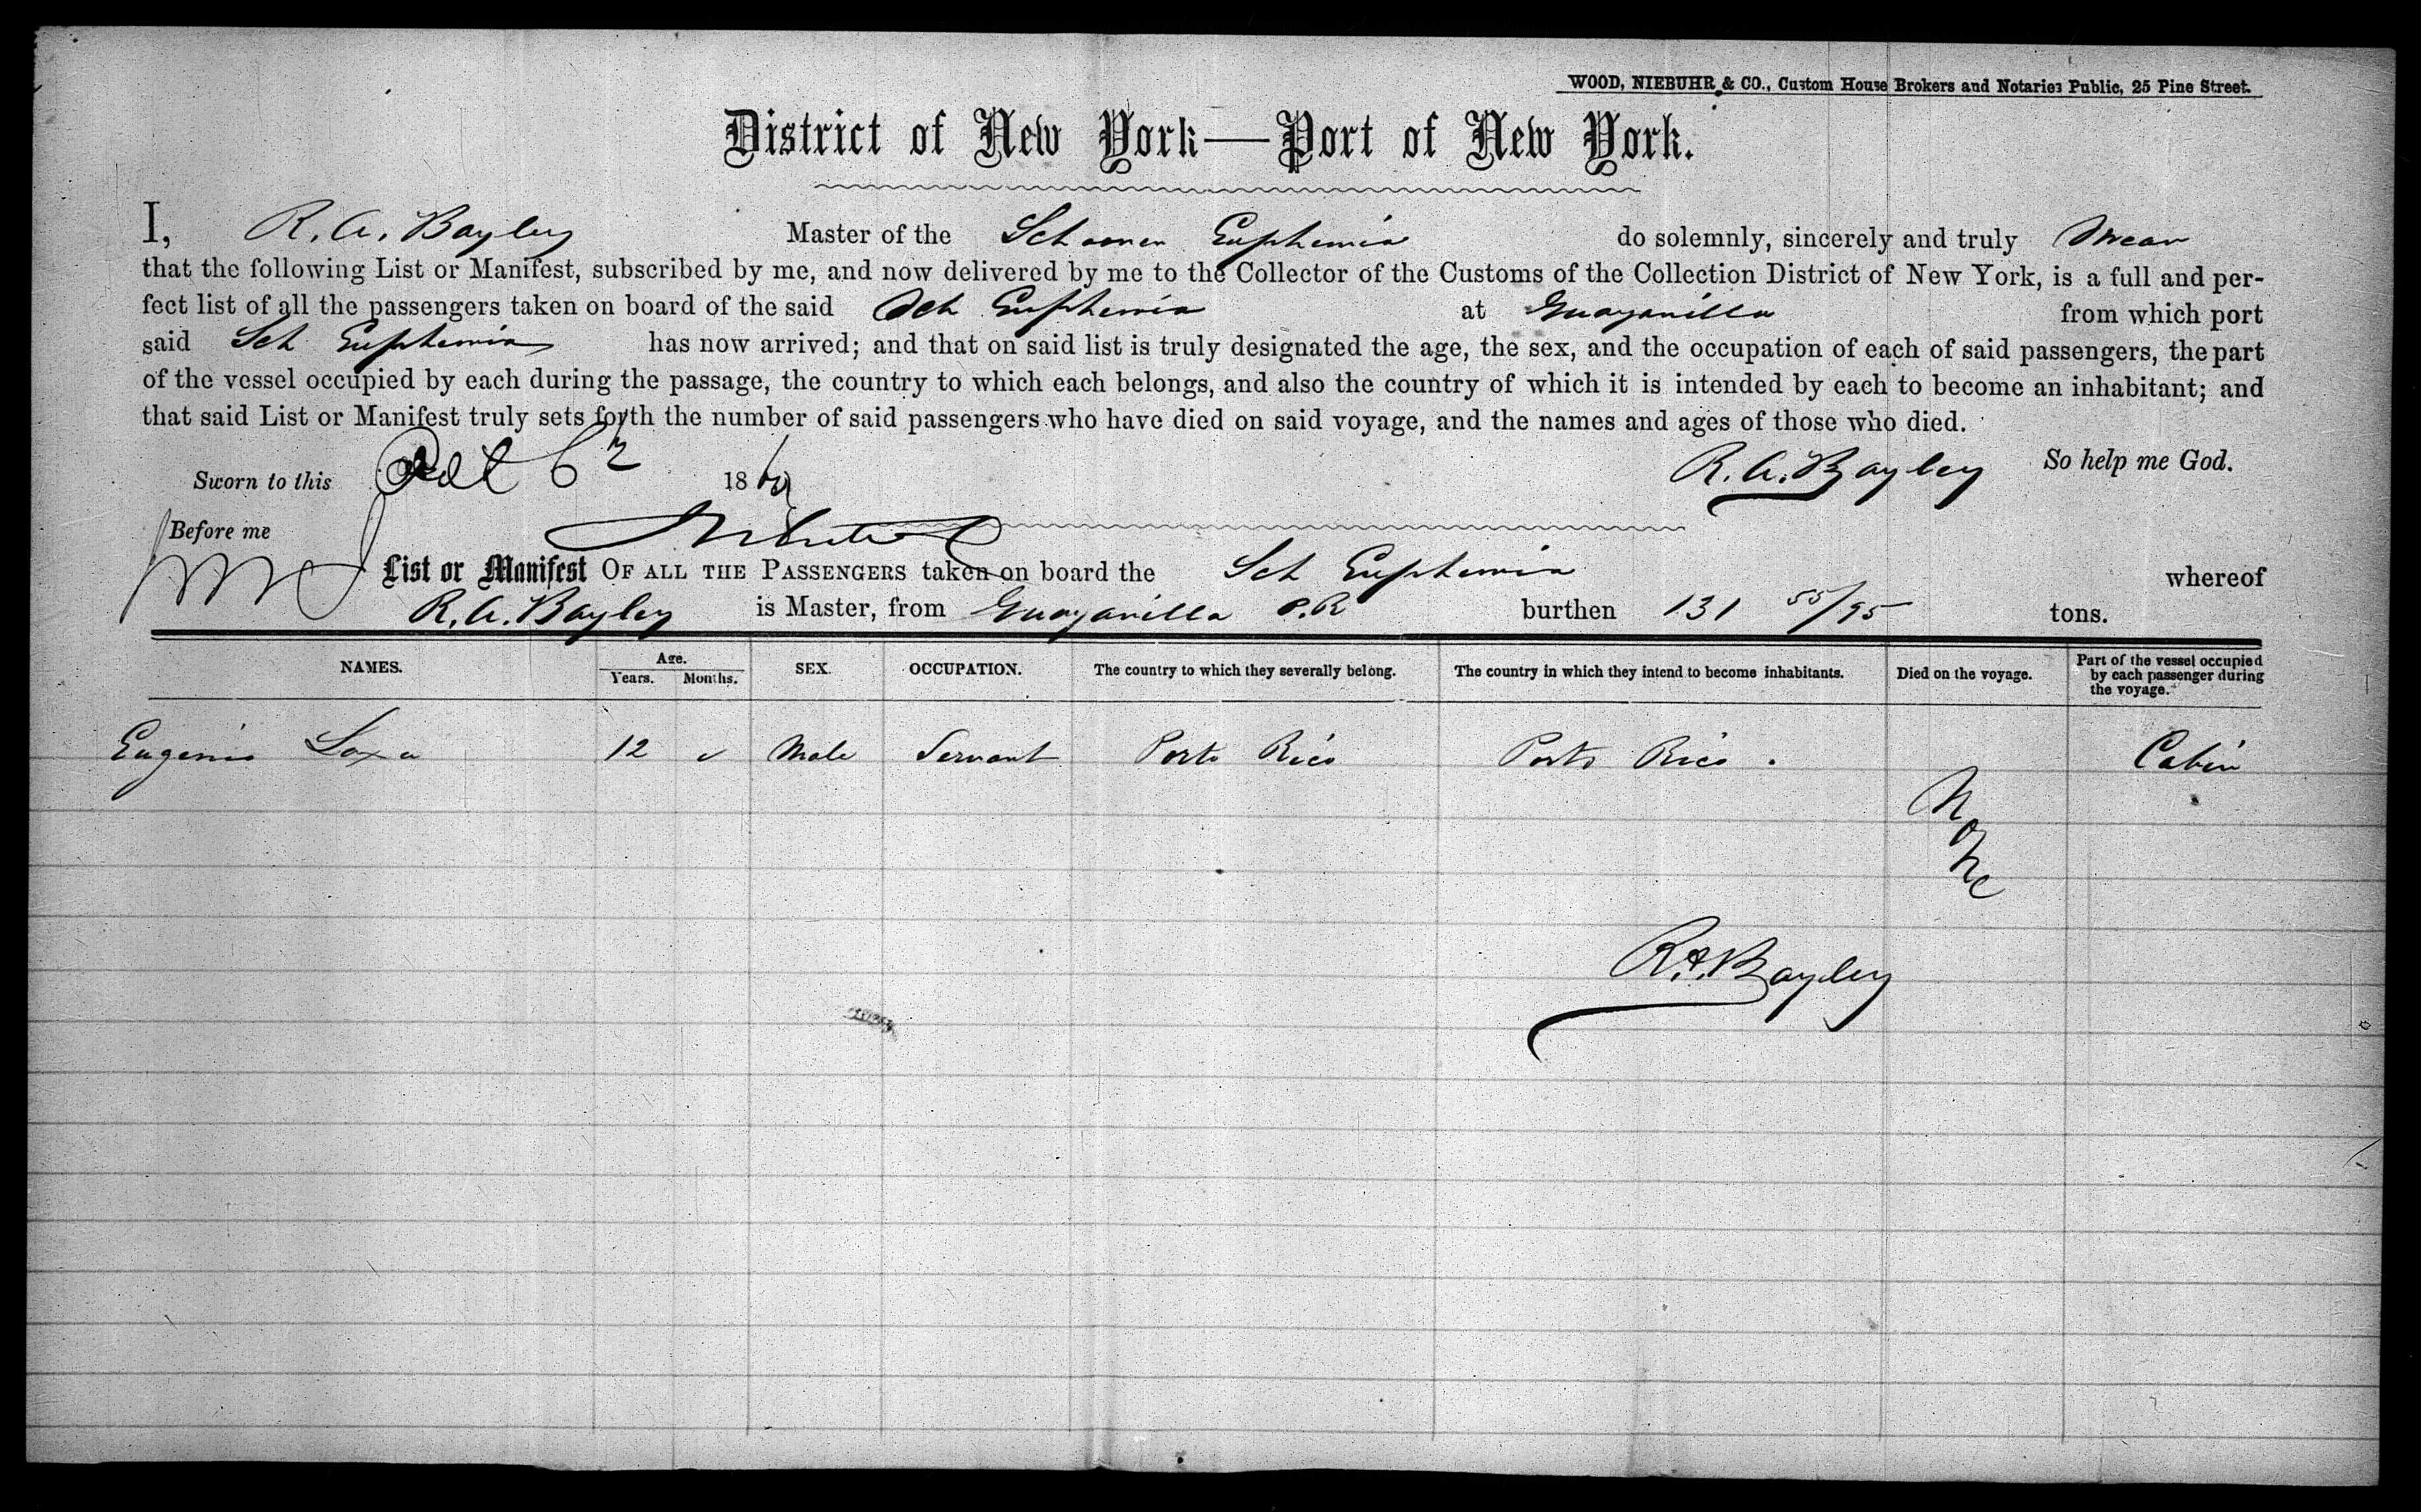 WOOD, NIEBUHR & CO., Custom House Brokers and Notaries Public, 25 Pine Street.
District of New York—Port of New York.
I, R. A. Bayley Master of the Schooner Euphemia do solemnly, sincerely and truly swear
that the following List or Manifest, subscribed by me, and now delivered by me to the Collector of the Customs of the Collection District of New York, is a full and per-
fect list of all the passengers taken on board of the said Sch Euphemia at Guayanilla from which port
said Sch Euphemia has now arrived; and that on said list is truly designated the age, the sex, and the occupation of each of said passengers, the part
of the vessel occupied by each during the passage, the country to which each belongs, and also the country of which it is intended by each to become an inhabitant; and
that said List or Manifest truly sets forth the number of said passengers who have died on said voyage, and the names and ages of those who died.
Sworn to this Oct 6 186 R. A. Bayley So help me God.
Before me
List or Manifest OF ALL THE PASSENGERS taken on board the Sch Euphemia whereof
R. A. Bayley is Master, from Guayanilla P.R burthen 131 55/95 tons.
NAMES. Age. Years. Months. SEX. OCCUPATION. The country to which they severally belong. The country in which they intend to become inhabitants. Died on the voyage. Part of the vessel occupied by each passenger during the voyage.
Eugenio Loxa 12 Male Servant Porto Rico Porto Rico. Cabin
None
R.A. Bayley